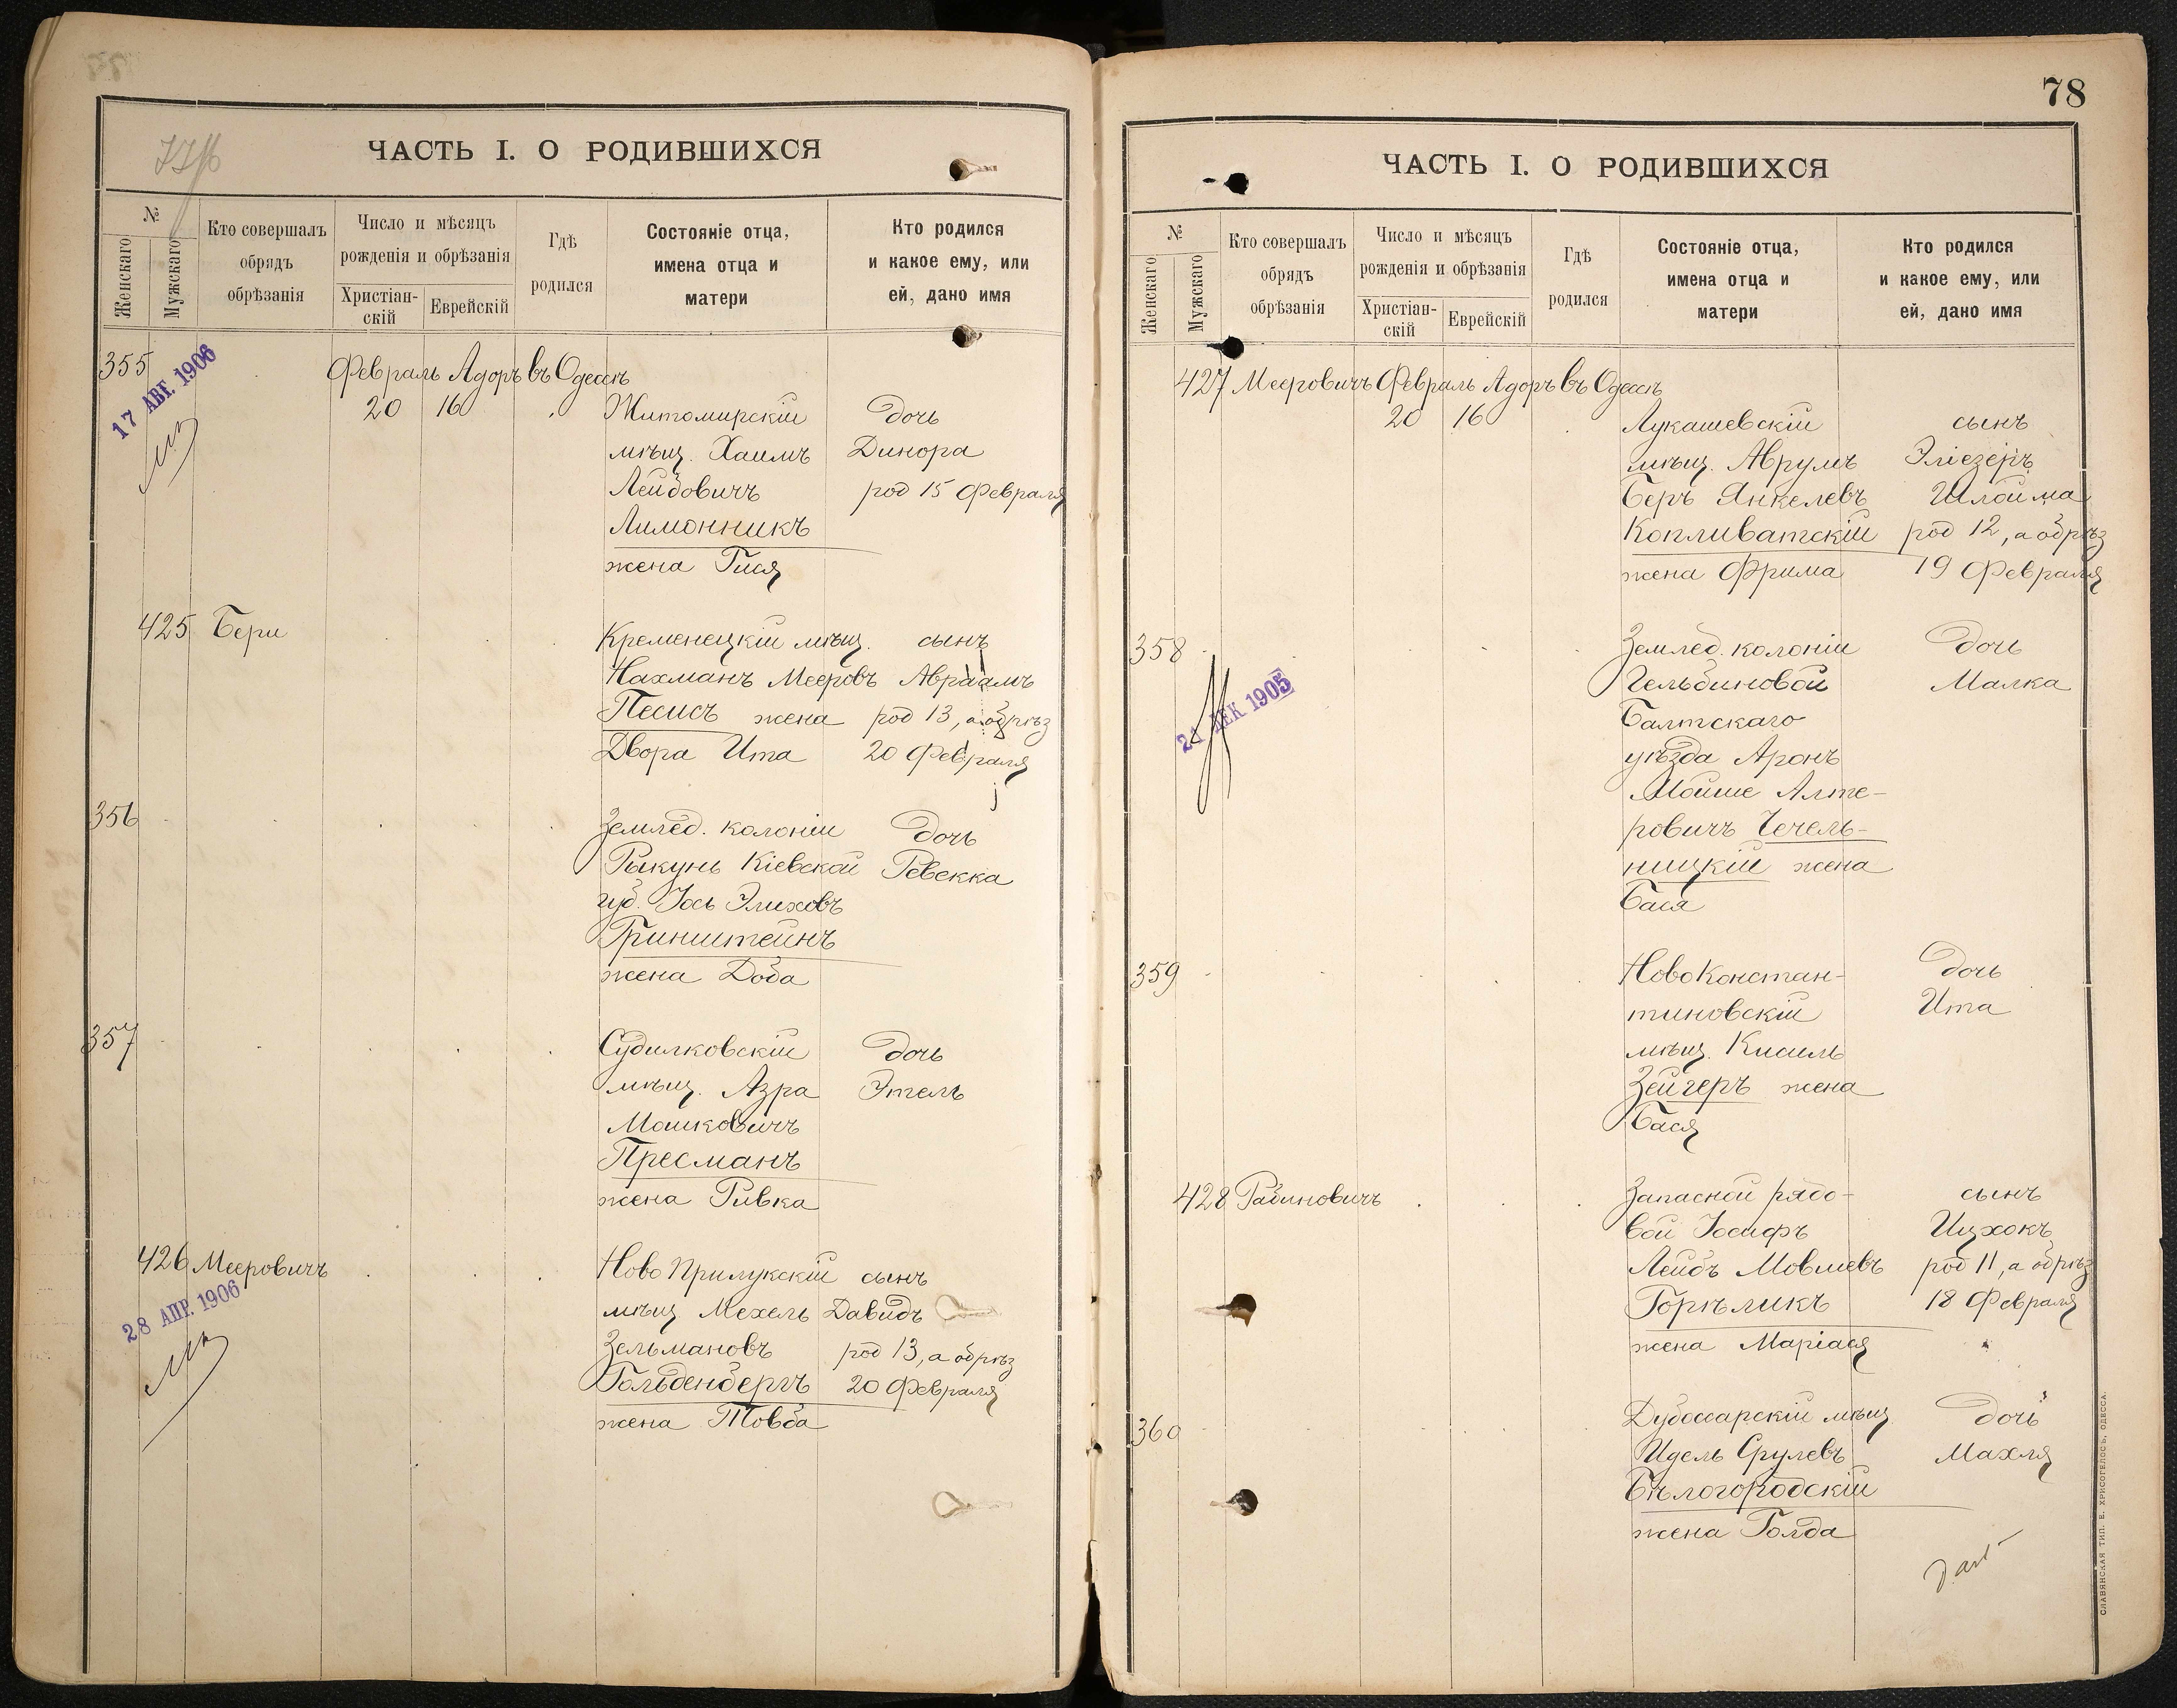 ЧАСТЬ I. О РОДИВШИХСЯ
№
Женскаго
Мужскаго
Кто совершалъ
обрядъ
обрѣзанія
Число и мѣсяцъ
рожденія и обрѣзанія
Христіан-
скій
Еврейскій
Гдѣ
родился
Состояніе отца,
имена отца и
матери
Кто родился
и какое ему, или
ей, дано имя
355
17 АВГ. 1906
Февраль Адоръ въ Одессѣ
20 16 Житомирскій дочь
мѣщ. Хаимъ Динора
Лейбовичъ род 15 Февраля
Лимонникъ
жена Гися
425 Бери Кременецкій мѣщ. сынъ
Нахманъ Мееровъ Авраамъ
Песисъ жена род 13, а обрѣз
Двора Ита 20 Февраля
356 Землед. колоніи дочь
Рыкунь Кіевской Ревекка
губ. Іось Элиховъ
Гринштейнъ
жена Доба
357 Судилковскій дочь
мѣщ. Азра Этель
Мошковичъ
Пресманъ
жена Ривка
426 Мееровичъ Ново Прилукскій сынъ
28 АПР. 1906
мѣщ Мехель Давидъ
Зельмановъ род 13, а обрѣз
Гольденбергъ 20 Февраля
жена Товба
78
ЧАСТЬ I. О РОДИВШИХСЯ
№
Женскаго
Мужскаго
Кто совершалъ
обрядъ
обрѣзанія
Число и мѣсяцъ
рожденія и обрѣзанія
Христіан-
скій
Еврейскій
Гдѣ
родился
Состояніе отца,
имена отца и
матери
Кто родился
и какое ему, или
ей, дано имя
427 Мееровичъ Февраль Адоръ въ Одессѣ
20 16 Лукашевскій сынъ
мѣщ. Аврумъ Эліезеръ
Беръ Янкелевъ Шлойма
Копливатскій род 12, а обрѣз
жена Фрима 19 Февраля
358 Землед. колоніи дочь
Гельбиновой Малка
21 ДЕК 1905
Балтскаго
уѣзда Аронъ
Мойше Алте-
ровичъ Чечель-
ницкій жена
Бася
359 Ново Констан- дочь
тиновскій Ита
мѣщ. Кисиль
Зейгеръ жена
Бася
428 Рабиновичъ Запасной рядо- сынъ
вой Іосифъ Ицхокъ
Лейбъ Мовшевъ род 11, а обрѣз
Горѣликъ 18 Февраля
жена Маріася
360 Дубоссарскій мѣщ. дочь
Идель Срулевъ Махля
Бѣлогородскій
жена Голда
СЛАВЯНСКАЯ ТИП. Е. ХРИСОГЕЛОСЪ, ОДЕССА.